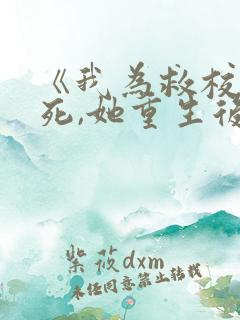 《我为救校
死,她重生后
紫莜dxm
未经同意禁止转载